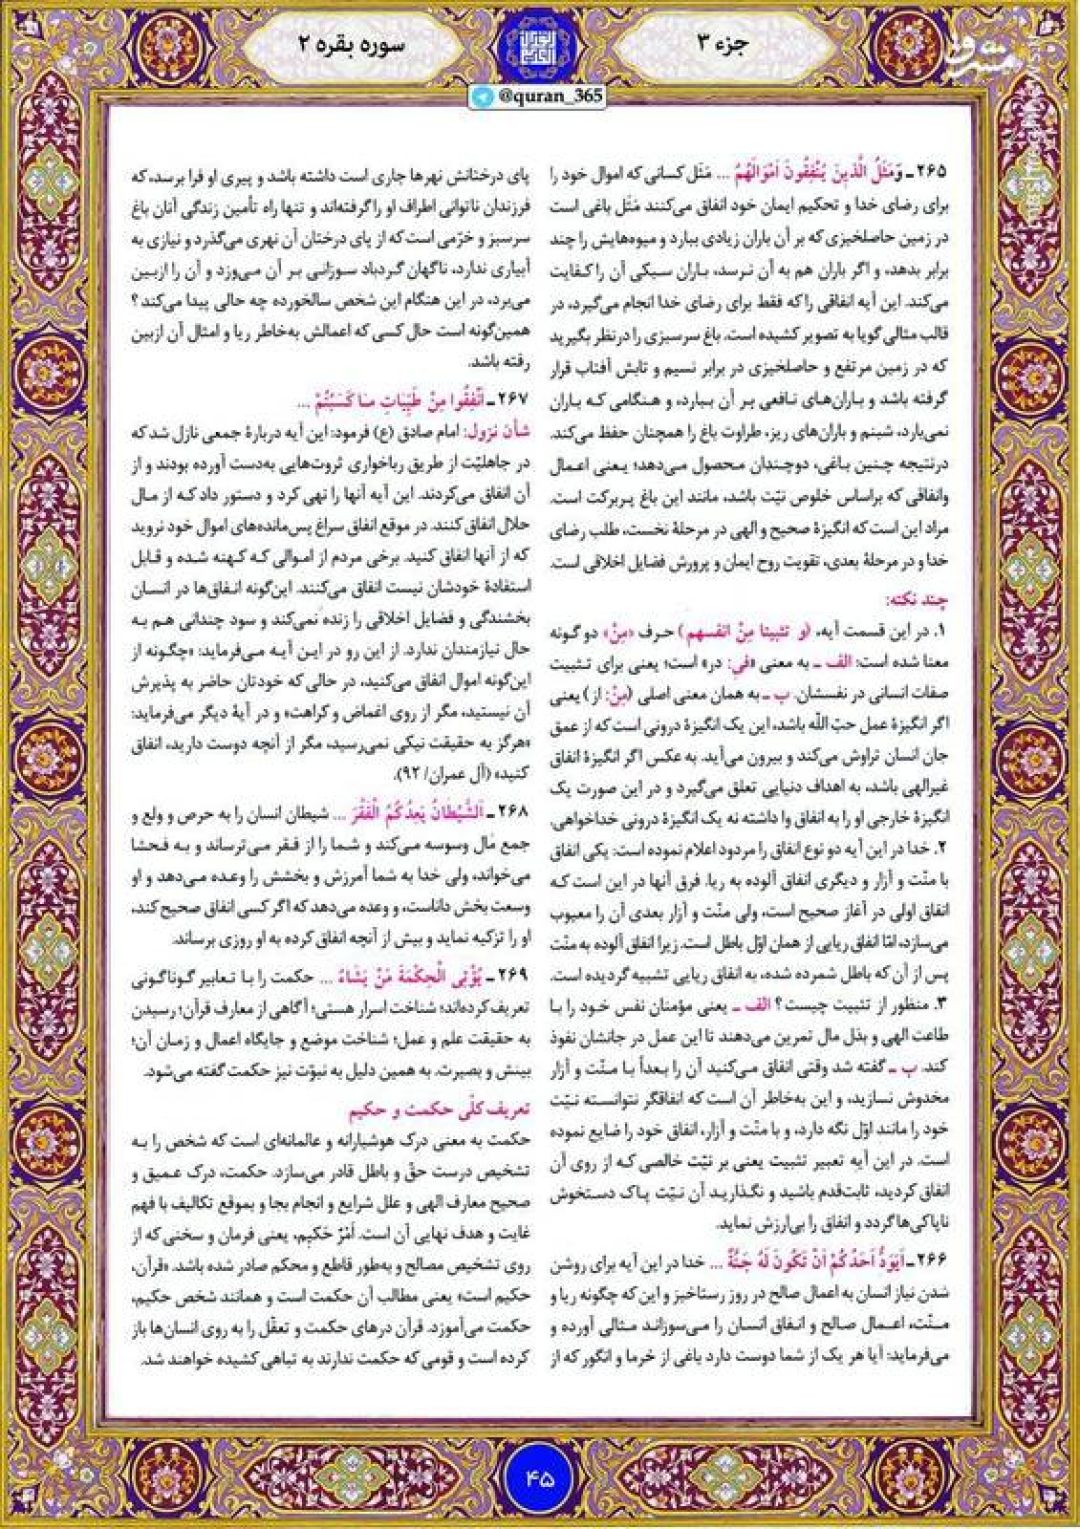 جزء ۳
سوره بقره ۲
@quran_365
۲۶۵ـ وَمَثَلُ الَّذینَ یُنْفِقُونَ اَمْوالَهُمُ ... مَثَل کسانی‌که اموال خود را
برای رضای خدا و تحکیم ایمان خود انفاق می‌کنند مَثَل باغی است
در زمین حاصلخیزی که بر آن باران زیادی ببارد و میوه‌هایش را چند
برابر بدهد، و اگر باران هم به آن نرسد، باران سبکی آن را کفایت
می‌کند. این آیه انفاقی را که فقط برای رضای خدا انجام می‌گیرد، در
قالب مثالی گویا به تصویر کشیده است. باغ سرسبزی را درنظر بگیرید
که در زمین مرتفع و حاصلخیزی در برابر نسیم و تابش آفتاب قرار
گرفته باشد و باران‌های نافعی بر آن ببارد، و هنگامی که باران
نمی‌بارد، شبنم و باران‌های ریز، طراوت باغ را همچنان حفظ می‌کند.
درنتیجه چنین باغی، دوچندان محصول می‌دهد؛ یعنی اعمال
وانفاقی که براساس خلوص نیّت باشد، مانند این باغ پربرکت است.
مراد این است که انگیزهٔ صحیح و الهی در مرحلهٔ نخست، طلب رضای
خدا و در مرحلهٔ بعدی، تقویت روح ایمان و پرورش فضایل اخلاقی است.
چند نکته:
۱. در این قسمت آیه، (و تثبیتا مِنْ انفسهم) حرف «مِنْ» دو گونه
معنا شده است: الف ـ به معنی «فی: در» است؛ یعنی برای تثبیت
صفات انسانی در نفسشان. ب ـ به همان معنی اصلی (مِنْ: از) یعنی
اگر انگیزهٔ عمل حبّ اللّٰه باشد، این یک انگیزهٔ درونی است که از عمق
جان انسان تراوش می‌کند و بیرون می‌آید. به عکس اگر انگیزهٔ انفاق
غیرالهی باشد، به اهداف دنیایی تعلق می‌گیرد و در این صورت یک
انگیزهٔ خارجی او را به انفاق وا داشته نه یک انگیزهٔ درونی خداخواهی.
۲. خدا در این آیه دو نوع انفاق را مردود اعلام نموده است: یکی انفاق
با منّت و آزار و دیگری انفاق آلوده به ریا. فرق آنها در این است که
انفاق اولی در آغاز صحیح است، ولی منّت و آزار بعدی آن را معیوب
می‌سازد، امّا انفاق ریایی از همان اوّل باطل است. زیرا انفاق آلوده به منّت
پس از آن که باطل شمرده شده، به انفاق ریایی تشبیه گردیده است.
۳. منظور از تثبیت چیست؟ الف ـ یعنی مؤمنان نفس خود را با
طاعت الهی و بذل مال تمرین می‌دهند تا این عمل در جانشان نفوذ
کند. ب ـ گفته شد وقتی انفاق می‌کنید آن را بعداً با منّت و آزار
مخدوش نسازید، و این به‌خاطر آن است که انفاقگر نتوانسته نیّت
خود را مانند اوّل نگه دارد، و با منّت و آزار، انفاق خود را ضایع نموده
است. در این آیه تعبیر تثبیت یعنی بر نیّت خالصی که از روی آن
انفاق کردید، ثابت‌قدم باشید و نگذارید آن نیّت پاک دستخوش
ناپاکی‌ها گردد و انفاق را بی‌ارزش نماید.
۲۶۶ـ اَیَوَدُّ اَحَدُکُمْ اَنْ تَکُونَ لَهُ جَنَّةٌ ... خدا در این آیه برای روشن
شدن نیاز انسان به اعمال صالح در روز رستاخیز و این که چگونه ریا و
منّت، اعمال صالح و انفاق انسان را می‌سوزاند مثالی آورده و
می‌فرماید: آیا هر یک از شما دوست دارد باغی از خرما و انگور که از
پای درختانش نهرها جاری است داشته باشد و پیری او فرا برسد، که
فرزندان ناتوانی اطراف او را گرفته‌اند و تنها راه تأمین زندگی آنان باغ
سرسبز و خرّمی است که از پای درختان آن نهری می‌گذرد و نیازی به
آبیاری ندارد، ناگهان گردباد سوزانی بر آن می‌وزد و آن را ازبین
می‌برد، در این هنگام این شخص سالخورده چه حالی پیدا می‌کند؟
همین‌گونه است حال کسی که اعمالش به‌خاطر ریا و امثال آن ازبین
رفته باشد.
۲۶۷ـ اَنْفِقُوا مِنْ طَیِّباتِ ما کَسَبْتُمْ ...
شأن نزول: امام صادق (ع) فرمود: این آیه دربارهٔ جمعی نازل شد که
در جاهلیّت از طریق رباخواری ثروت‌هایی به‌دست آورده بودند و از
آن انفاق می‌کردند. این آیه آنها را نهی کرد و دستور داد که از مال
حلال انفاق کنند. در موقع انفاق سراغ پس‌مانده‌های اموال خود نروید
که از آنها انفاق کنید. برخی مردم از اموالی که کهنه شده و قابل
استفادهٔ خودشان نیست انفاق می‌کنند. این‌گونه انفاق‌ها در انسان
بخشندگی و فضایل اخلاقی را زنده نمی‌کند و سود چندانی هم به
حال نیازمندان ندارد. از این رو در این آیه می‌فرماید: «چگونه از
این‌گونه اموال انفاق می‌کنید، در حالی که خودتان حاضر به پذیرش
آن نیستید، مگر از روی اغماض و کراهت» و در آیهٔ دیگر می‌فرماید:
«هرگز به حقیقت نیکی نمی‌رسید، مگر از آنچه دوست دارید، انفاق
کنید» (آل عمران/ ۹۲).
۲۶۸ـ اَلشَّیْطانُ یَعِدُکُمُ الْفَقْرَ ... شیطان انسان را به حرص و ولع و
جمع مال وسوسه می‌کند و شما را از فقر می‌ترساند و به فحشا
می‌خواند، ولی خدا به شما آمرزش و بخشش را وعده می‌دهد و او
وسعت بخش داناست، و وعده می‌دهد که اگر کسی انفاق صحیح کند،
او را تزکیه نماید و بیش از آنچه انفاق کرده به او روزی برساند.
۲۶۹ـ یُؤْتِی الْحِکْمَةَ مَنْ یَشاءُ ... حکمت را با تعابیر گوناگونی
تعریف کرده‌اند؛ شناخت اسرار هستی؛ آگاهی از معارف قرآن؛ رسیدن
به حقیقت علم و عمل؛ شناخت موضع و جایگاه اعمال و زمان آن؛
بینش و بصیرت. به همین دلیل به نبوّت نیز حکمت گفته می‌شود.
تعریف کلّی حکمت و حکیم
حکمت به معنی درک هوشیارانه و عالمانه‌ای است که شخص را به
تشخیص درست حقّ و باطل قادر می‌سازد. حکمت، درک عمیق و
صحیح معارف الهی و علل شرایع و انجام بجا و بموقع تکالیف با فهم
غایت و هدف نهایی آن است. اَمْرٌ حَکیم، یعنی فرمان و سخنی که از
روی تشخیص مصالح و به‌طور قاطع و محکم صادر شده باشد. «قرآن،
حکیم است» یعنی مطالب آن حکمت است و همانند شخص حکیم،
حکمت می‌آموزد. قرآن درهای حکمت و تعقّل را به روی انسان‌ها باز
کرده است و قومی که حکمت ندارند به تباهی کشیده خواهند شد.
۴۵